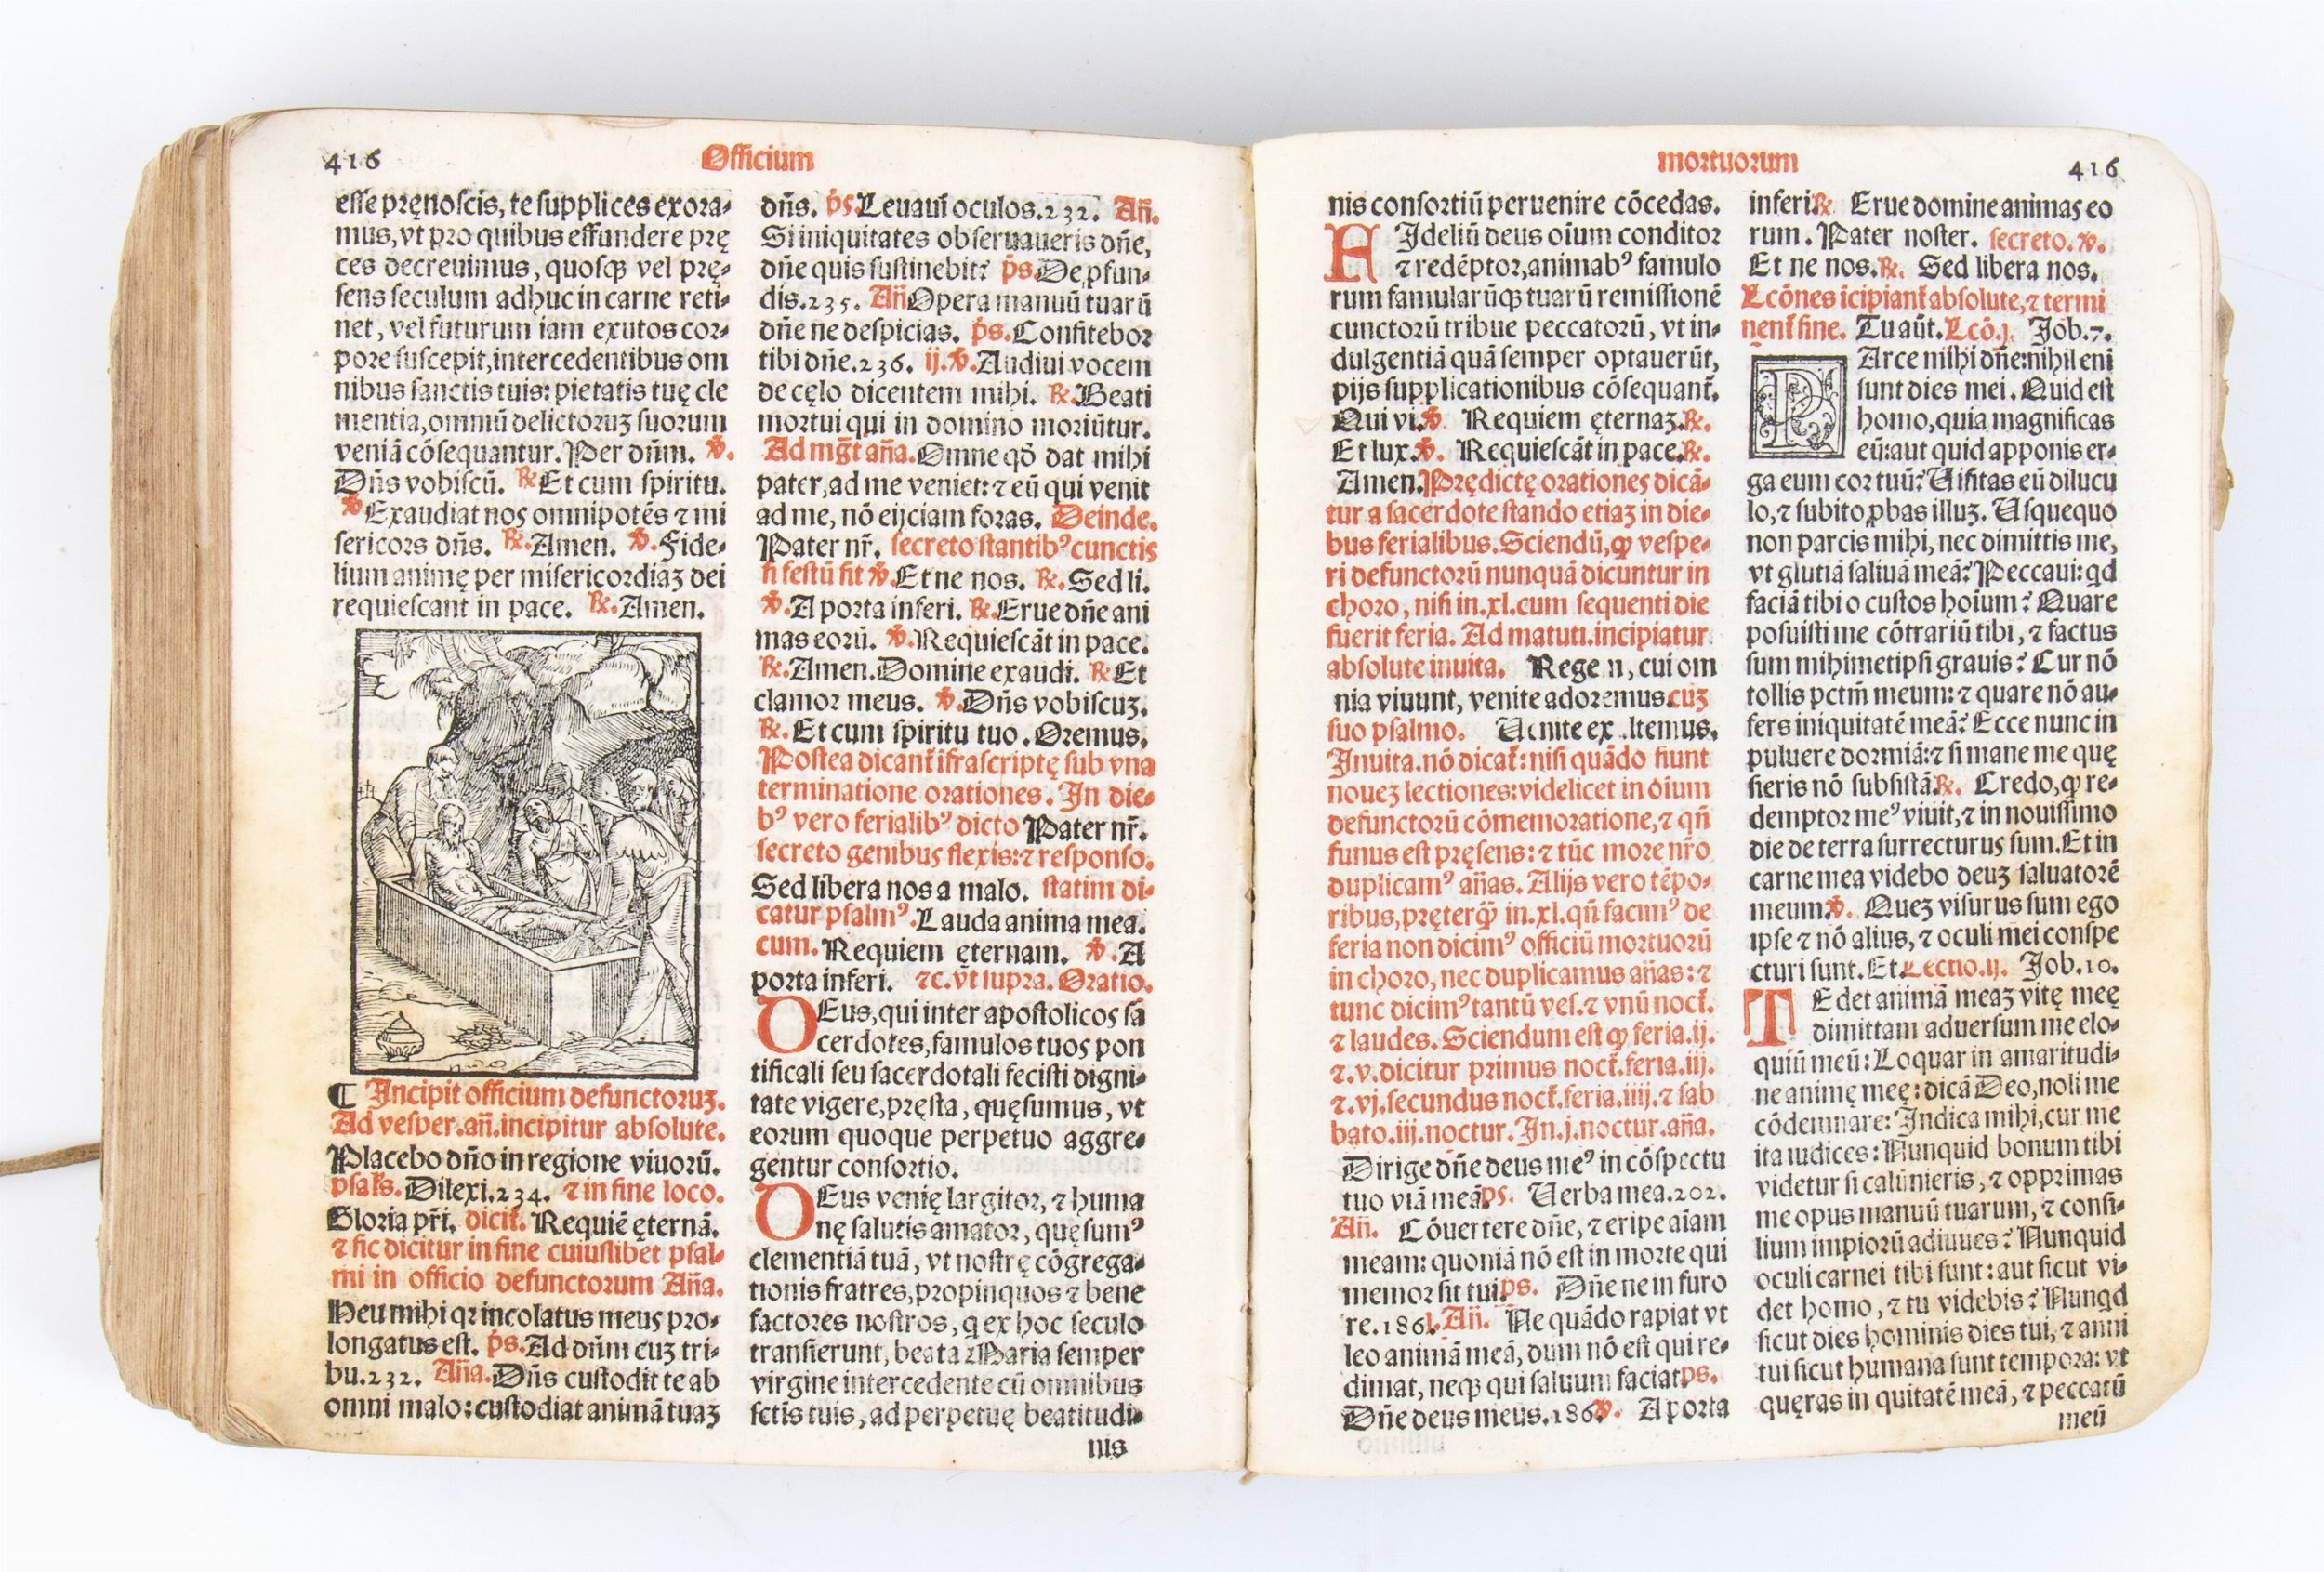 416
Officium
esse pręnoscis, te supplices exora-
mus, vt pro quibus effundere prę
ces decreuimus, quosqꝫ vel prę-
sens seculum adhuc in carne reti-
net, vel futurum iam exutos cor-
pore suscepit, intercedentibus om
nibus sanctis tuis: pietatis tuę cle
mentia, omniū delictoruꝫ suorum
veniā cōsequantur. Per dn̄m. ℣.
Dn̄s vobiscū. ℞ Et cum spiritu.
℣ Exaudiat nos omnipotēs ⁊ mi
sericors dn̄s. ℞. Amen. ℣. Fide-
lium animę per misericordiaꝫ dei
requiescant in pace. ℞. Amen.
¶ Incipit officium defunctoruꝫ.
Ad vesper. an̄. incipitur absolute.
Placebo dn̄o in regione viuorū.
psals. Dilexi. 234. ⁊ in fine loco.
Gloria pr̄i. dicit̄. Requiē ęternā.
⁊ sic dicitur in fine cuiuslibet psal-
mi in officio defunctorum An̄a.
Heu mihi qꝛ incolatus meus pro-
longatus est. p̄s. Ad dn̄m cuꝫ tri-
bu. 232. An̄a. Dn̄s custodit te ab
omni malo: custodiat animā tuaꝫ
dn̄s. p̄s. Leuaui oculos. 232. An̄.
Si iniquitates obseruaueris dn̄e,
dn̄e quis sustinebit? p̄s De ꝓfun-
dis. 235. An̄ Opera manuū tuarū
dn̄e ne despicias. p̄s. Confitebor
tibi dn̄e. 236. ij. ℣. Audiui vocem
de cęlo dicentem mihi. ℞. Beati
mortui qui in domino moriūtur.
Ad mḡt an̄a. Omne qď dat mihi
pater, ad me veniet: ⁊ eū qui venit
ad me, nō eijciam foras. Deinde.
Pater nr̄. secreto stantibꝰ cunctis
si festū sit ℣. Et ne nos. ℞. Sed li.
℣. A porta inferi. ℞. Erue dn̄e ani
mas eorū. ℣. Requiescāt in pace.
℞. Amen. Domine exaudi. ℞ Et
clamor meus. ℣. Dn̄s vobiscuꝫ.
℞. Et cum spiritu tuo. Oremus.
Postea dicant̄ īfrascriptę sub vna
terminatione orationes. In die-
bꝰ vero ferialibꝰ dicto Pater nr̄.
secreto genibus flexis: ⁊ responso.
Sed libera nos a malo. statim di-
catur psalmꝰ. Lauda anima mea.
cum. Requiem ęternam. ℣. A
porta inferi. ⁊c. vt supra. Oratio.
DEus, qui inter apostolicos sa
cerdotes, famulos tuos pon
tificali seu sacerdotali fecisti digni-
tate vigere, pręsta, quęsumus, vt
eorum quoque perpetuo aggre-
gentur consortio.
DEus venię largitor, ⁊ huma
nę salutis amator, quęsumꝰ
clementiā tuā, vt nostrę cōgrega-
tionis fratres, propinquos ⁊ bene
factores nostros, q ex hoc seculo
transierunt, beata Maria semper
virgine intercedente cū omnibus
sctīs tuis, ad perpetuę beatitudi-
nis
mortuorum
416
nis consortiū peruenire cōcedas.
FIdeliū deus oīum conditor
⁊ redēptor, animabꝰ famulo
rum famularūqꝫ tuarū remissionē
cunctorū tribue peccatorū, vt in-
dulgentiā quā semper optauerūt,
pijs supplicationibus cōsequant̄.
Qui vi. ℣. Requiem ęternaꝫ. ℞.
Et lux. ℣. Requiescāt in pace. ℞.
Amen. Prędictę orationes dicā-
tur a sacerdote stando etiaꝫ in die-
bus ferialibus. Sciendū, ꝙ vespe-
ri defunctorū nunquā dicuntur in
choro, nisi in. xl. cum sequenti die
fuerit feria. Ad matuti. incipiatur
absolute inuita. Rege n, cui om
nia viuunt, venite adoremus. cuꝫ
suo psalmo. Venite ex ltemus.
Inuita. nō dicat̄: nisi quādo fiunt
noueꝫ lectiones: videlicet in oīum
defunctorū cōmemoratione, ⁊ qn̄
funus est pręsens: ⁊ tūc more nr̄o
duplicamꝰ an̄as. Alijs vero tēpo-
ribus, pręterq̄ꝫ in. xl. qn̄ facimꝰ de
feria non dicimꝰ officiū mortuorū
in choro, nec duplicamus an̄as: ⁊
tunc dicimꝰ tantū ves. ⁊ vnū noct̄.
⁊ laudes. Sciendum est ꝙ feria. ij.
⁊. v. dicitur primus noct̄. feria. iij.
⁊. vj. secundus noct̄. feria. iiij. ⁊ sab
bato. iij. noctur. In. j. noctur. an̄a.
Dirige dn̄e deus meꝰ in cōspectu
tuo viā meā. ps. Verba mea. 202.
An̄. Cōuertere dn̄e, ⁊ eripe aīam
meam: quoniā nō est in morte qui
memor sit tui. ps. Dn̄e ne in furo
re. 186. An̄. Ne quādo rapiat vt
leo animā meā, dum nō est qui re-
dimat, neqꝫ qui saluum faciat. ps.
Dn̄e deus meus. 186. ℣. A porta
inferi. ℞. Erue domine animas eo
rum. Pater noster. secreto. ℣.
Et ne nos. ℞. Sed libera nos.
Lcōnes īcipiant̄ absolute, ⁊ termi
nent̄ sine. Tu aūt. Lcō. j. Job. 7.
PArce mihi dn̄e: nihil eni
sunt dies mei. Quid est
homo, quia magnificas
eū: aut quid apponis er-
ga eum cor tuū? Visitas eū dilucu
lo, ⁊ subito ꝓbas illuꝫ. Vsquequo
non parcis mihi, nec dimittis me,
vt glutiā saliuā meā? Peccaui: qd
faciā tibi o custos hoīum? Quare
posuisti me cōtrariū tibi, ⁊ factus
sum mihimetipsi grauis? Cur nō
tollis pctm̄ meum: ⁊ quare nō au-
fers iniquitatē meā? Ecce nunc in
puluere dormiā: ⁊ si mane me quę
sieris nō subsistā. ℞. Credo, ꝙ re-
demptor meꝰ viuit, ⁊ in nouissimo
die de terra surrecturus sum. Et in
carne mea videbo deuꝫ saluatorē
meum. ℣. Queꝫ visurus sum ego
ipse ⁊ nō alius, ⁊ oculi mei conspe
cturi sunt. Et. Lectio. ij. Job. 10.
TEdet animā meaꝫ vitę meę
dimittam aduersum me elo-
quiū meū: Loquar in amaritudi-
ne animę meę: dicā Deo, noli me
cōdemnare: Indica mihi, cur me
ita iudices: Nunquid bonum tibi
videtur si calūnieris, ⁊ opprimas
me opus manuū tuarum, ⁊ consi-
lium impiorū adiuues? Nunquid
oculi carnei tibi sunt: aut sicut vi-
det homo, ⁊ tu videbis? Nunqd
sicut dies hominis dies tui, ⁊ anni
tui sicut humana sunt tempora: vt
quęras in quitatē meā, ⁊ peccatū
meū